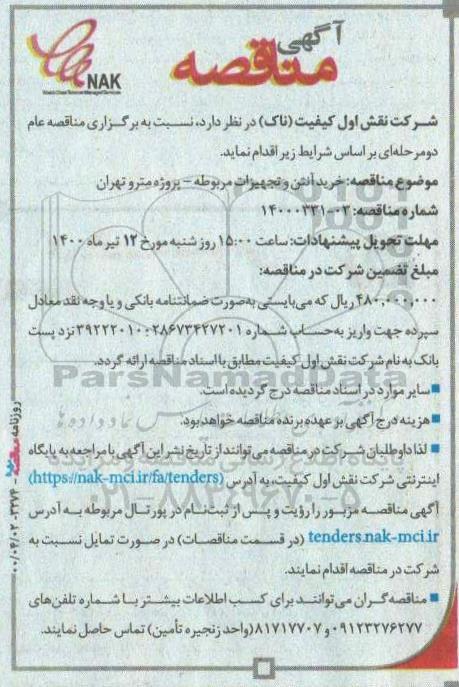 آگهی
مناقصه
NAK
World Class Telecom Managed Services
شرکت نقش اول کیفیت (ناک) در نظر دارد، نسبت به برگزاری مناقصه عام
دومرحله‌ای بر اساس شرایط زیر اقدام نماید.
موضوع مناقصه: خرید آنتن و تجهیزات مربوطه - پروژه مترو تهران
شماره مناقصه: ۰۲-۱۴۰۰۰۳۳۱
مهلت تحویل پیشنهادات: ساعت ۱۵:۰۰ روز شنبه مورخ ۱۲ تیر ماه ۱۴۰۰
مبلغ تضمین شرکت در مناقصه:
۴۸۰,۰۰۰,۰۰۰ ریال که می‌بایستی به‌صورت ضمانتنامه بانکی و یا وجه نقد معادل
سپرده جهت واریز به‌حساب شماره ۳۹۲۲۲۰۱۰۰۲۸۶۷۳۴۲۷۲۰۱ نزد پست
بانک به نام شرکت نقش اول کیفیت مطابق با اسناد مناقصه ارائه گردد.
سایر موارد در اسناد مناقصه درج گردیده است.
هزینه درج آگهی بر عهده برنده مناقصه خواهد بود.
لذا داوطلبان شرکت در مناقصه می‌توانند از تاریخ نشر این آگهی با مراجعه به پایگاه
اینترنتی شرکت نقش اول کیفیت، به آدرس (https://nak-mci.ir/fa/tenders)
آگهی مناقصه مزبور را رؤیت و پس از ثبت‌نام در پورتال مربوطه به آدرس
tenders.nak-mci.ir (در قسمت مناقصات) در صورت تمایل نسبت به
شرکت در مناقصه اقدام نمایند.
مناقصه‌گران می‌توانند برای کسب اطلاعات بیشتر با شماره تلفن‌های
۰۹۱۲۳۲۷۶۲۷۷ و ۸۱۷۱۷۷۰۷ (واحد زنجیره تأمین) تماس حاصل نمایند.
روزنامه مناقصه - ۳۳۷۴ - ۰۰/۰۴/۰۲
ParsNamadData
پایگاه اطلاع رسانی مناقصه و مزایده
۰۲۱-۸۸۳۴۹۶۷۰-۵